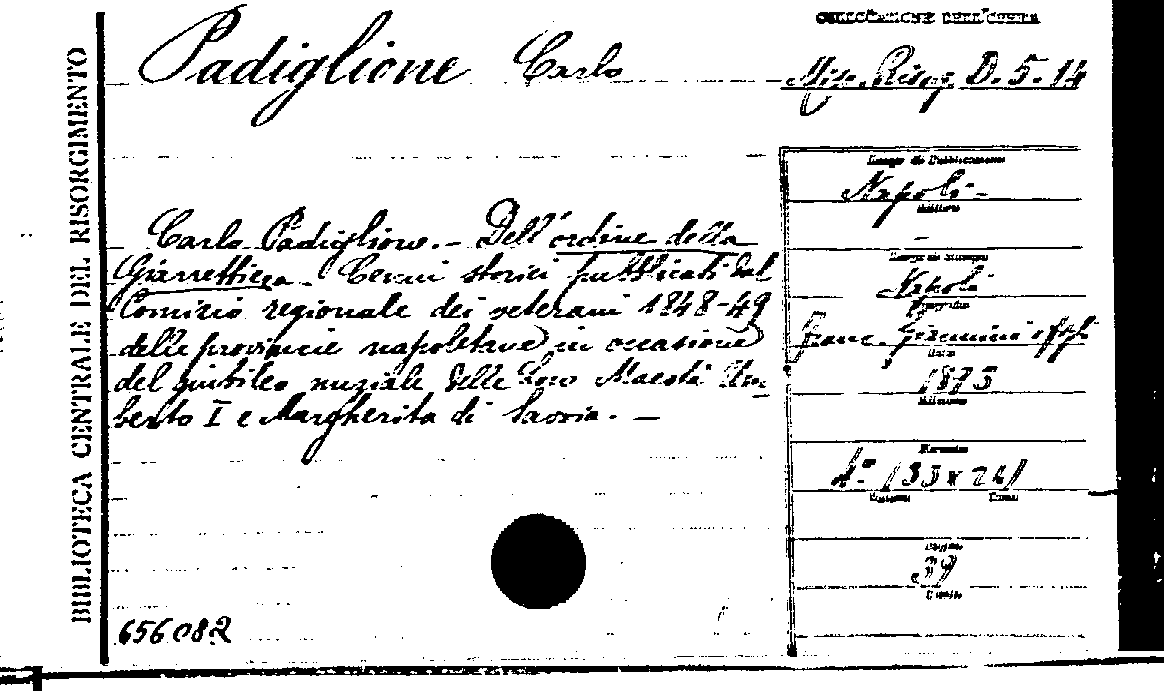 COLLOCAZIONE DELL'OPERA
Padiglione Carlo
Misc. Risorg. D. 5. 14
BIBLIOTECA CENTRALE DEL RISORGIMENTO
Carlo Padiglione. - Dell'ordine della
Giarrettiera. Cenni storici pubblicati dal
Comizio regionale dei veterani 1848-49
delle provincie napoletane in occasione
del giubileo nuziale delle Loro Maestà Um-
berto I e Margherita di Savoia. -
656082
Luogo di Pubblicazione
Napoli -
Editore
-
Luogo di Stampa
Napoli
Tipografia
Franc. Giannini e figli
Data
Edizione
Formato
4° (33 x 24)
Volume
Pagine
39